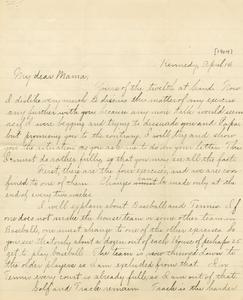 [1909]
Kennedy, April 14
My dear Mama,
Yours of the twelfth at hand. Now
I dislike very much to discuss the matter of my expenses
any further with you because any more talk would seem
as if I were begging and trying to dissuade you and Papa
but promising you to the contrary, I will try and show
you the situation as you ask me to do in your letter. This
I must do rather fully so that you may see all the facts.
First, there are the four exercises, and we are con-
fined to one of them. Changes must be made only at the
end of every two weeks.
I will explain about Baseball and Tennis. If
one does not make the house team or some other team in
Baseball, one must change to one of the other exercises. So
you see that only about a dozen out of each house of perhaps 25
get to play baseball. The team is now thinned down to
the older players so I am excluded from that. In
Tennis every court is already full so I am out of that.
Golf and Track remain. Track is the hardest